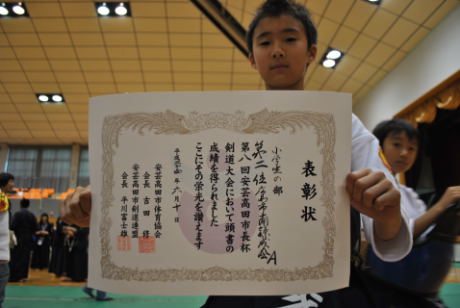 表彰状
小学生の部
第二位
第八回安芸高田市長杯
剣道大会において頭書の
成績を得られました
ここにその栄光を讃えます
平成二四年六月十日
安芸高田市体育協会
会長 吉田 修
安芸高田市剣道連盟
会長 平川富士雄